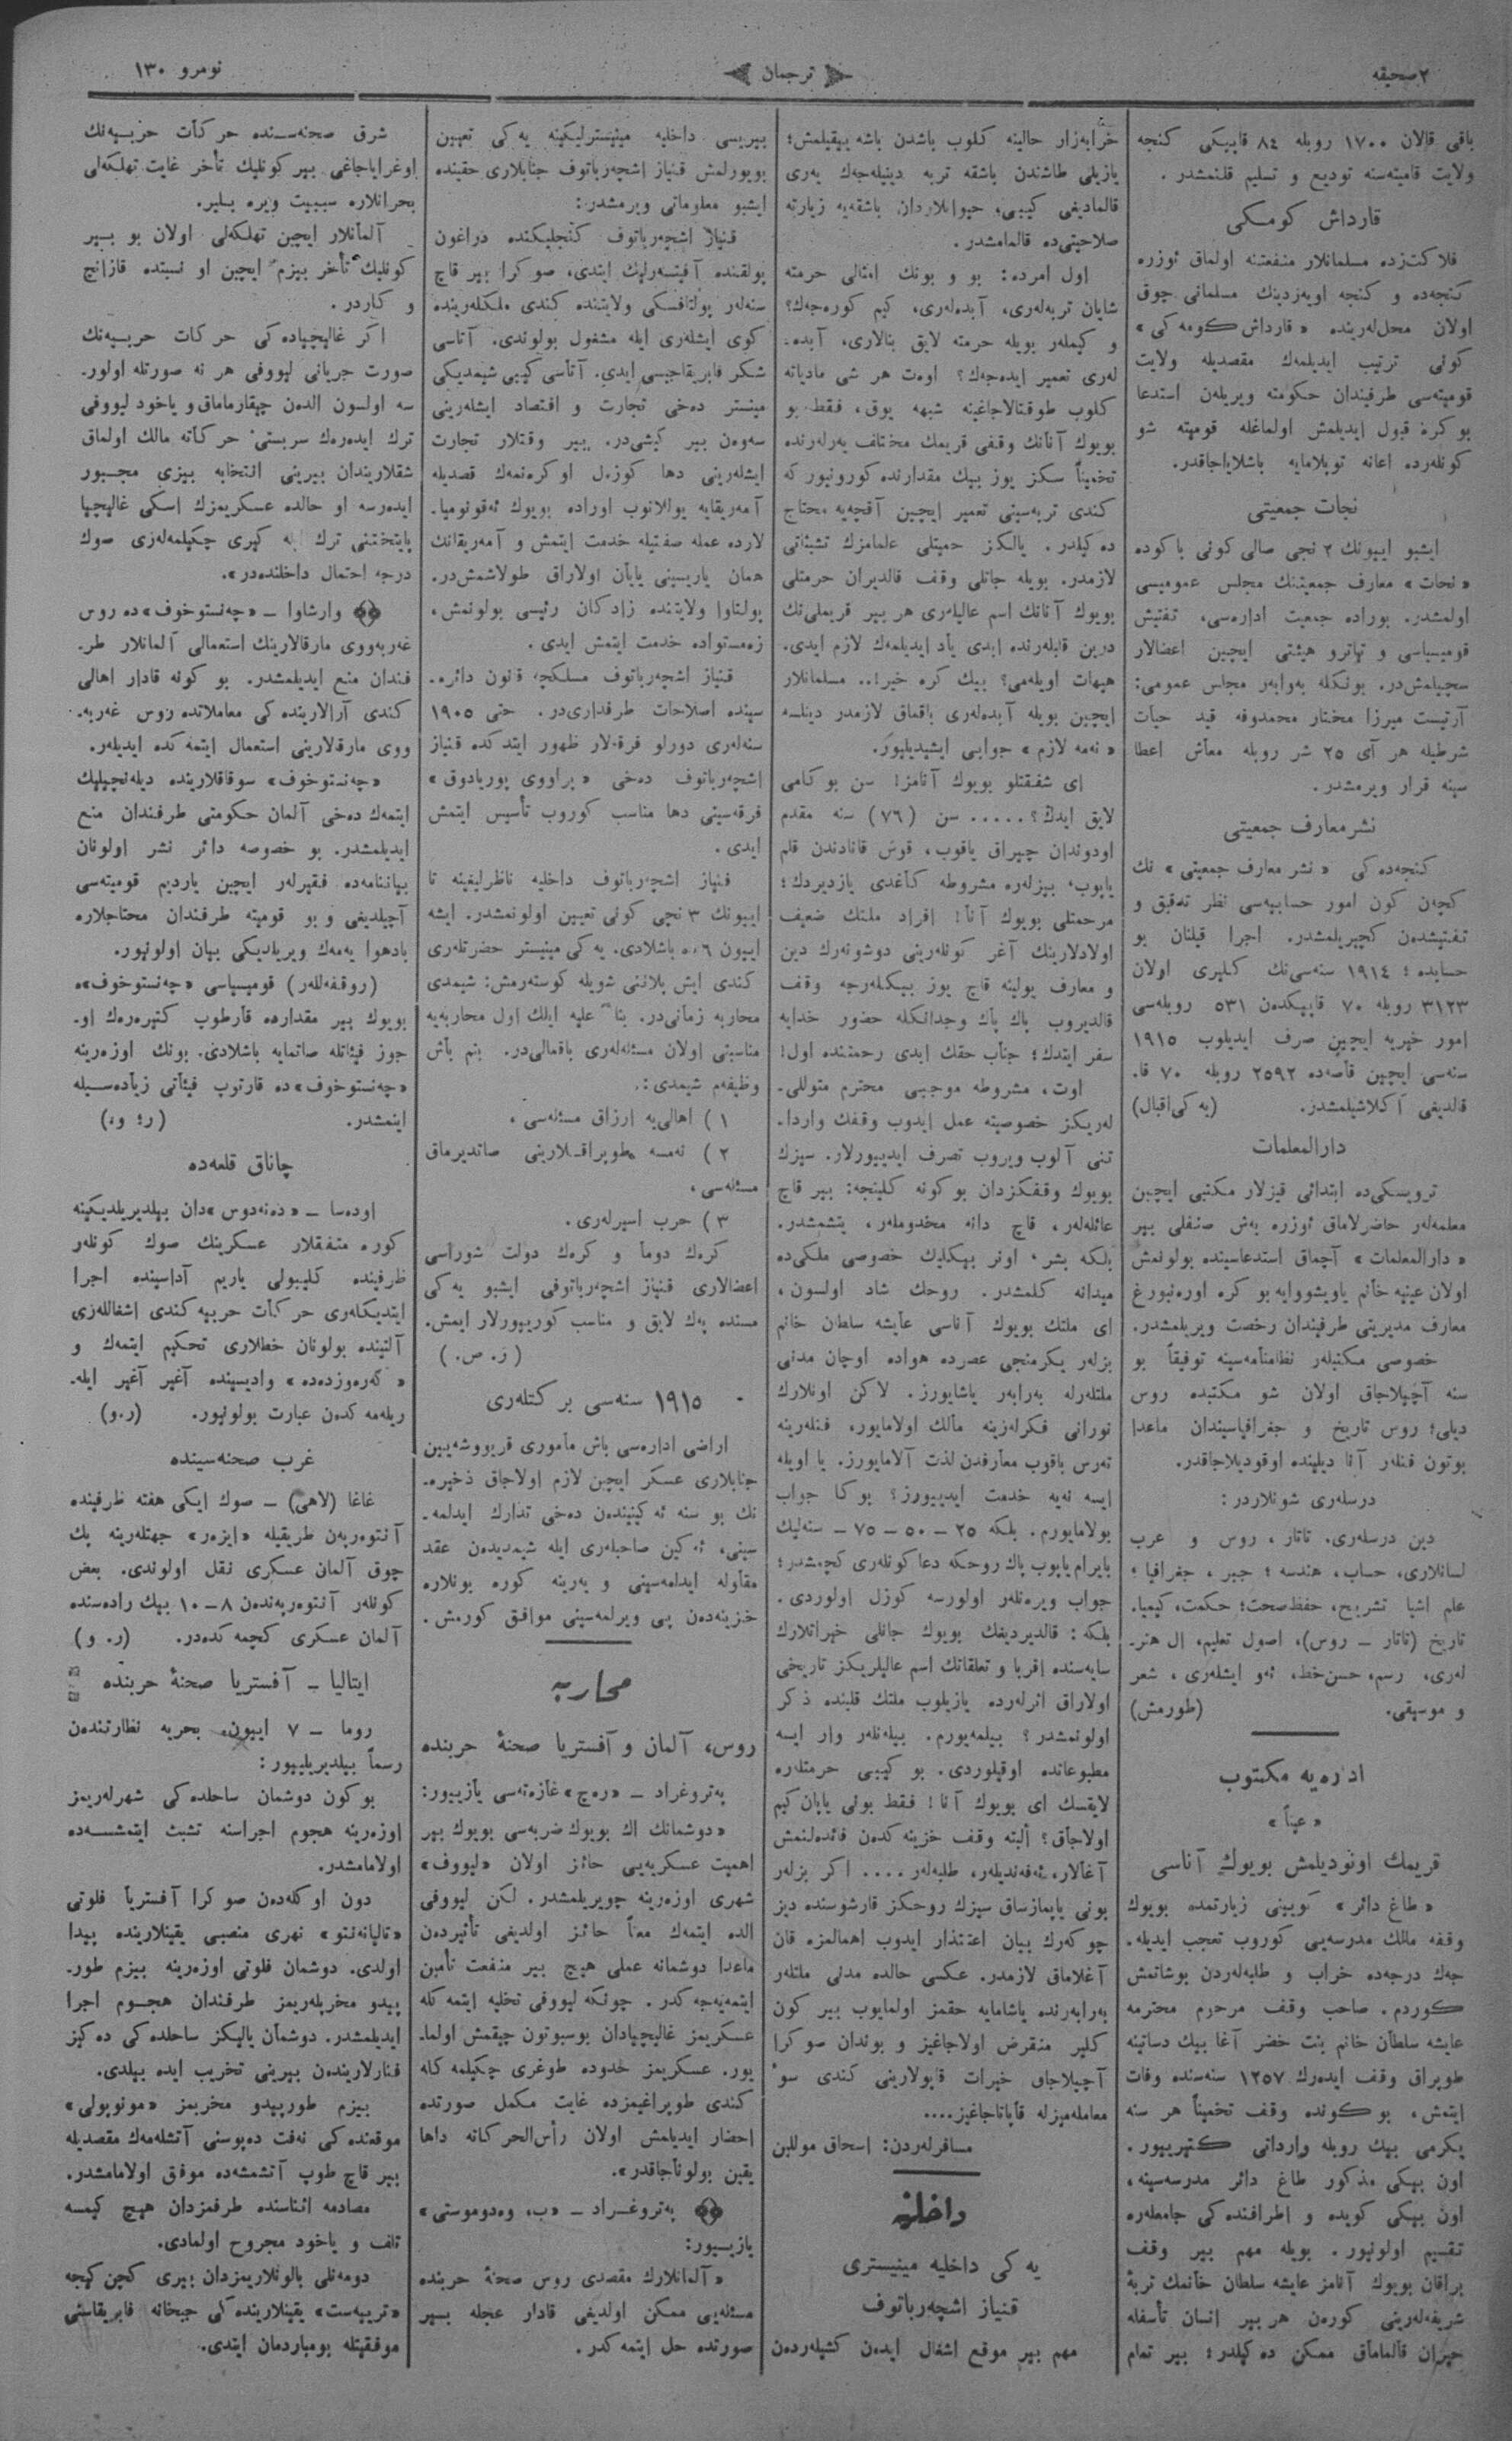 ٢ صحیفه
ترجمان
نومرو ١٣٠
باقی قالان ١٧٠٠ روبله ٨٤ قاپیکی کنجه
ولایت قامیته‌سنه تودیع و تسلیم قلنمشدر .
قارداش کومکی
فلاکت‌زده مسلمانلار منفعتنه اولماق ئوزره
کنجه‌ده و کنجه اویه‌زدینك مسلمانی چوق
اولان محل‌لەرینده «قارداش کومه‌کی»
کونی ترتیب ایدیلمەك مقصدیله ولایت
قومیته‌سی طرفیندان حکومته ویریلەن استدعا
بو کره قبول ایدیلمش اولماغله قومیته شو
کونلەرده اعانه توپلامایه باشلایاجاقدر.
نجات جمعیتی
ایشبو ایونك ٢ نجی صالی کونی باکوده
«نجات» معارف جمعیتنك مجلس عمومیسی
اولمشدر. بوراده جمعیت اداره‌سی، تفتیش
قومیسیاسی و تیاترو هیئتی ایچین اعضالار
سچیلمش‌در. بونکله به‌رابه‌ر مجلس عمومی:
آرتیست میرزا مختار محمدوفه قید حیات
شرطیله هر آی ٢٥ شر روبله معاش اعطا
سینه قرار ویرمشدر.
نشر معارف جمعیتی
کنجه‌ده‌کی «نشر معارف جمعیتی» نك
کچەن کون امور حسابیه‌سی نظر تدقیق و
تفتیشدن کچیریلمشدر. اجرا قیلنان بو
حسابده؛ ١٩١٤ سنه‌سی‌نك کلیری اولان
٣١٢٣ روبله ٧٠ قاپیکدن ٥٣١ روبله‌سی
امور خیریه ایچین صرف ایدیلوب ١٩١٥
سنه‌سی ایچین قاصه‌ده ٢٥٩٢ روبله ٧٠ قا.
قالدیغی آکلاشیلمشدر. (یه‌کی اقبال)
دارالمعلمات
ترویسکی‌ده ابتدائی قیزلار مکتبی ایچین
معلمەلەر حاضرلاماق ئوزره بەش صنفلی بیر
«دارالمعلمات» آچماق استدعاسینده بولونمش
اولان عینیه خانم یاویشووایه بو کره اورەنبورغ
معارف مدیریتی طرفیندان رخصت ویریلمشدر.
خصوصی مکتبلەر نظامنامه‌سینه توفیقاً بو
سنه آچیلاجاق اولان شو مکتبده روس
دیلی؛ روس تاریخ و جغرافیاسیندان ماعدا
بوتون فنلەر آنا دیلینده اوقودیلاجاقدر.
درسلەری شونلاردر:
دین درسلەری. تاتار، روس و عرب
لسانلاری، حساب، هندسه؛ جبر، جغرافیا؛
علم اشیا تشریح، حفظ صحت؛ حکمت، کیمیا.
تاریخ (تاتار ــ روس)، اصول تعلیم، ال هنر-
لەری، رسم، حسن خط، ئەو ایشلەری، شعر
و موسیقی. (طورمش)
اداره‌یه مکتوب
«عیناً»
قریمك اونودیلمش بویوك آناسی
«طاغ دائر» کویینی زیارتمده بویوك
وقفه مالك مدرسه‌یی کوروب تعجب ایدیله.
جەك درجه‌ده خراب و طلبەلەردن بوشانمش
کوردم. صاحب وقف مرحوم محترمه
عایشه سلطان خانم بنت خضر آغا بیك دسانینه
طوپراق وقف ایدەرك ١٢٥٧ سنەسنده وفات
ایتمش، بو کونده وقف تخمیناً هر سنه
یکرمی بیك روبله وارداتی کتیرییور.
اون بیکی مذکور طاغ دائر مدرسەسینه،
اون بیکی کویده و اطرافنده کی جامعلەره
تقسیم اولونیور. بویله مهم بیر وقف
براقان بویوك آنامز عایشه سلطان خانمك تربهٔ
شریفەلەرینی کورەن هر بیر انسان تأسفله
حیران قالماماق ممکن ده کیلدر؛ بیر تمام
خرابەزار حالینه کلوب باشدن باشه ییقیلمش؛
یازیلی طاشندن باشقه تربه دینیلەجەك یەری
قالمادیغی کیبی، حیوانلاردان باشقه‌یه زیارته
صلاحیتی‌ده قالمامشدر.
اول امرده: بو و بونك امثالی حرمته
شایان تربەلەری، آبدەلەری، کیم کورەجەك؟
و کیملەر بویله حرمته لایق بنالاری، آبده-
لەری تعمیر ایدەجەك؟ اوەت هر شی مادیاته
کلوب طوقنالاجاغینه شبهه یوق، فقط بو
بویوك آنانك وقفی قریمك مختلف یەرلەرنده
تخمیناً سکز یوز بیك مقدارنده کورونیور که
کندی تربه‌سینی تعمیر ایچین آقچه‌یه محتاج
ده کیلدر. یالکز حمیتلی علمامزك تشبثاتی
لازمدر. بویله جانلی وقف قالدیران حرمتلی
بویوك آنانك اسم عالیلەری هر بیر قریملی‌نك
درین قلبلەرنده ابدی یاد ایدیلمەك لازم ایدی.
هیهات اویله‌می؟ بیك کره خیر!.. مسلمانلار
ایچین بویله آبدەلەری باقماق لازمدر دینلسه
«نەمه لازم» جوابی ایشیدیلیور.
ای شفقتلو بویوك آنامز! سن بو کامی
لایق ایدك؟..... سن (٧٦) سنه مقدم
اودوندان چیراق یاقوب، قوش قانادندن قلم
یاپوب، بیزلەره مشروطه کاغدی یازدیردك؛
مرحمتلی بویوك آنا! افراد ملتك ضعیف
اولادلارینك آغر کونلەرینی دوشونەرك دین
و معارف یولینه قاچ یوز بیکلەرجه وقف
قالدیروب پاك پاك وجدانکله حضور خدایه
سفر ایتدك؛ جناب حقك ابدی رحمتنده اول!
اوت، مشروطه موجبی محترم متوللی-
لەریکز خصوصیته عمل ایدوب وقفك واردا-
تنی آلوب ویروب تصرف ایدییورلار. سیزك
بویوك وقفکزدان بو کونه کلینجه: بیر قاچ
عائلەلەر، قاچ دانه مخدوملەر، یتشمشدر.
بلکه بشر، اونر بیکلیك خصوصی ملکی‌ده
میدانه کلمشدر. روحك شاد اولسون،
ای ملتك بویوك آناسی عایشه سلطان خانم
بزلەر یکرمنجی عصرده هواده اوچان مدنی
ملتلەرله بەرابەر یاشایورز. لاکن اونلارك
نورانی فکرلەرینه مالك اولامایور، فنلەرینه
تەرس باقوب معارفدن لذت آلامایورز. یا اویله
ایسه نەیه خدمت ایدییورز؟ بوکا جواب
بولامایورم. بلکه ٢٥ ــ ٥٠ ــ ٧٥ ــ سنەلیك
بایرام یاپوب پاك روحکه دعا کونلەری کچمشدر؛
جواب ویرەنلەر اولورسه کوزل اولوردی.
بلکه: قالدیردیغك بویوك جانلی خیراتلارك
سایەسنده اقربا و تعلقاتك اسم عالیلریکز تاریخی
اولاراق اثرلەرده یازیلوب ملتك قلبنده ذکر
اولونمشدر؟ بیلمەیورم. بیلەنلەر وار ایسه
مطبوعاتده اوقیلوردی. بو کیبی حرمتلەره
لایقسك ای بویوك آنا! فقط بونی یاپان کیم
اولاجاق؟ ألبته وقف خزینه کدەن فائدەلنمش
آغالار، ئەفەندیلەر، طلبەلەر.... اکر بزلەر
بونی یاپمازساق سیزك روحکز قارشوسنده دیز
چوکەرك بیان اعتذار ایدوب اهمالمزه قان
آغلاماق لازمدر. عکسی حالده مدنی ملتلەر
بەرابەرنده یاشامایه حقمز اولمایوب بیر کون
کلیر منقرض اولاجاغیز و بوندان صوکرا
آچیلاجاق خیرات قاپولارینی کندی سوء
معامله‌میزله قاپاتاجاغیز....
مسافرلەردن: اسحاق موللین
داخلیه
یه‌کی داخلیه مینیستری
قنیاز اشچەرباتوف
مهم بیر موقع اشغال ایدەن کشیلەردەن
بیریسی داخلیه مینیسترلیکینه یه‌کی تعیین
بویورلمش قنیاز اشچەرباتوف جنابلاری حقینده
ایشبو معلوماتی ویرمشدر:
قنیاز اشچەرباتوف کنجلیکنده دراغون
پولقنده آفیتسەرلیك ایتدی، صوکرا بیر قاچ
سنەلەر پولتافسکی ولایتنده کندی ملکلەرینده
کوی ایشلەری ایله مشغول بولوندی. آتاسی
شکر فابریقاجیسی ایدی. آتاسی کیبی شیمدیکی
مینستر دەخی تجارت و اقتصاد ایشلەرینی
سەوەن بیر کیشی‌در. بیر وقتلار تجارت
ایشلەرینی دها کوزەل اوکرەنمەك قصدیله
آمەریقایه یوللانوب اوراده بویوك ئەقونومیا-
لارده عمله صفتیله خدمت ایتمش و آمەریقانك
همان یاریسینی یایان اولاراق طولاشمش‌در.
پولتاوا ولایتنده زادکان رئیسی بولونمش،
زەمستواده خدمت ایتمش ایدی.
قنیاز اشچەرباتوف مسلکچه قانون دائره-
سینده اصلاحات طرفداری‌در. حتی ١٩٠٥
سنەلەری دورلو فرقەلار ظهور ایتدکده قنیاز
اشچەرباتوف دەخی «پراووی پوریادوق»
فرقه‌سینی دها مناسب کوروب تأسیس ایتمش
ایدی.
قنیاز اشچەرباتوف داخلیه ناظرلیغینه تا
ایونك ٣ نجی کونی تعیین اولونمشدر. ایشه
ایون ٦ ده باشلادی. یه‌کی مینیستر حضرتلەری
کندی ایش پلاننی شویله کوسترمش: شیمدی
محاربه زمانی‌در. بناءً علیه ایلك اول محاربەیه
مناسبتی اولان مسئلەلەری باقمالی‌در. بنم باش
وظیفه‌م شیمدی:
١) اهالی‌یه ارزاق مسئله‌سی،
٢) نەمسه طوپراقلارینی صاتدیرماق
مسئله‌سی،
٣) حرب اسیرلەری.
کرەك دوما و کرەك دولت شوراسی
اعضالاری قنیاز اشچەرباتوفی ایشبو یه‌کی
مسنده پەك لایق و مناسب کورییورلار ایمش.
(ز. ص.)
١٩١٥ سنەسی بر کتلەری
اراضی اداره‌سی باش ماموری قریووشەیین
جنابلاری عسکر ایچین لازم اولاجاق ذخیره-
نك بو سنه ئه کینیندەن دەخی تدارك ایدلمه-
سینی، ئه کین صاحبلەری ایله شیمدیدەن عقد
مقاوله ایدلمەسینی و یەرینه کوره بونلاره
خزینەدەن پی ویرلمەسینی موافق کورمش.
محاربه
روس، آلمان و آفستریا صحنهٔ حربنده
پەتروغراد ــ «رەچ» غازەتەسی یازییور:
«دوشمانك اك بویوك ضربەسی بویوك بیر
اهمیت عسکریه‌یی حائز اولان «لیووف»
شهری اوزەرینه چویریلمشدر. لکن لیووفی
الده ایتمەك معناً حائز اولدیغی تأثیردەن
ماعدا دوشمانه عملی هیچ بیر منفعت تأمین
ایتمەیه‌جه کدر. چونکه لیووفی تخلیه ایتمه کله
عسکریمز غالیچیادان بوسبوتون چیقمش اولما-
یور. عسکریمز حدوده طوغری چکیلمه کله
کندی طوپراغیمزده غایت مکمل صورتده
احضار ایدیلمش اولان رأس‌الحرکاته داها
یقین بولوناجاقدر».
پەتروغراد ــ «ب، وەدوموستی»
یازییور:
«آلمانلارك مقصدی روس صحنهٔ حربنده
مسئله‌یی ممکن اولدیغی قادار عجله بیر
صورتده حل ایتمه کدر.
شرق صحنەسنده حرکات حربیەنك
اوغرایاجاغی بیر کونلیك تأخر غایت تهلکەلی
بحرانلاره سببیت ویره بیلیر.
آلمانلار ایچین تهلکەلی اولان بو بیر
کونلیك تأخر بیزم ایچین او نسبتده قازانچ
و کاردر.
اکر غالیچیاده‌کی حرکات حربیەنك
صورت جریانی لیووفی هر نه صورتله اولور-
سه اولسون الدەن چیقارماماق و یاخود لیووفی
ترك ایدەرك سربستئ حرکاته مالك اولماق
شقلاریندان بیرینی انتخابه بیزی مجبور
ایدەرسه او حالده عسکریمزك اسکی غالیچیا
پایتختنی ترك ایله کیری چکیلمەلەری صوك
درجه احتمال داخلنده‌در».
وارشاوا ــ «چەنستوخوف»ده روس
غەربەووی مارقالارینك استعمالی آلمانلار طر-
فندان منع ایدیلمشدر. بو کونه قادار اهالی
کندی آرالارینده‌کی معاملاتده روس غەربه-
ووی مارقالارینی استعمال ایتمه کده ایدیلەر.
«چەنستوخوف» سوقاقلارینده دیلەنجیلیك
ایتمەك دەخی آلمان حکومتی طرفندان منع
ایدیلمشدر. بو خصوصه دائر نشر اولونان
بیاننامەده فقیرلەر ایچین یاردیم قومیتەسی
آچیلدیغی و بو قومیته طرفندان محتاجلاره
بادهوا یەمەك ویریلدیکی بیان اولونیور.
(روقفەللەر) قومیسیاسی «چەنستوخوف»ه
بویوك بیر مقدارده قارطوپ کتیرەرەك او-
جوز فیئاتله صاتمایه باشلادی. بونك اوزەرینه
«چەنستوخوف»ده قارتوپ فیئاتی زیادەسیله
اینمشدر. (ر؛ و،)
چاناق قلعەده
اودەسا ــ «دەنەدوس»دان بیلدیریلدیکینه
کوره متفقلار عسکرینك صوك کونلەر
ظرفینده کلیبولی یاریم آداسینده اجرا
ایتدیکلەری حرکات حربیه کندی اشغاللەری
آلتینده بولونان خطلاری تحکیم ایتمەك و
«کەرەوزدەدە» وادیسینده آغیر آغیر ایله-
ریلەمه کدەن عبارت بولونیور. (ر.و)
غرب صحنەسینده
غاغا (لاهی) ــ صوك ایکی هفته ظرفینده
آنتوەرپەن طریقیله «ایزەر» جهتلەرینه پك
چوق آلمان عسکری نقل اولوندی. بعض
کونلەر آنتوەرپەندەن ٨ــ١٠ بیك رادەسنده
آلمان عسکری کچمه کده‌در. (ر. و)
ایتالیا ــ آفستریا صحنهٔ حربنده
روما ــ ٧ ایون، بحریه نظارتندەن
رسماً بیلدیریلییور:
بو کون دوشمان ساحلده‌کی شهرلەریمز
اوزەرینه هجوم اجراسنه تشبث ایتمشسەده
اولامامشدر.
دون اوکلەدەن صوکرا آفستریا فلوتی
«تالیانەنتو» نهری منصبی یقینلارینده پیدا
اولدی. دوشمان فلوتی اوزەرینه بیزم طور-
پیدو مخریبلەریمز طرفندان هجوم اجرا
ایدیلمشدر. دوشمان یالیکز ساحلده‌کی ده‌کیز
فنارلاریندەن بیرینی تخریب ایده بیلدی.
بیزم طورپیدو مخریبمز «مونوپولی»
موقعنده‌کی نەفت دەپوسنی آتشلەمەك مقصدیله
بیر قاچ طوپ آتمشسەده موفق اولامامشدر.
مصادمه اثناسنده طرفمزدان هیچ کیمسه
تلف و یاخود مجروح اولمادی.
دومەنلی بالونلاریمزدان بیری کچن کیجه
«ترییەست» یقینلارینده‌کی جبخانه فابریقاسنی
موفقیتله بومباردمان ایتدی.